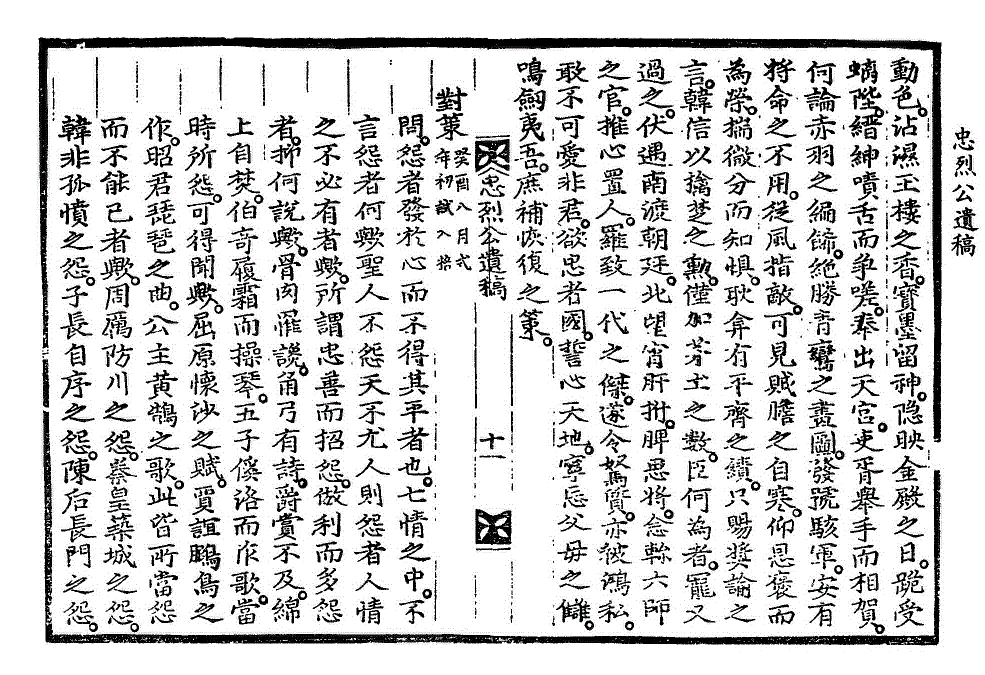 忠烈公遺稿
動色。沾濕玉樓之香。寶墨留神。隱映金殿之日。跪受
螭陛。縉紳嘖舌而爭嗟。奉出天宮。吏胥舉手而相賀。
何論赤羽之編。飾絶勝靑鸞之畵圖。發號駭軍。安有
將命之不用。從風指敵。可見賊膽之自寒。仰思褒而
爲榮。揣微分而知懼。耿弇有平齊之績。只賜奬諭之
言。韓信以擒楚之勳。僅加茅土之數。臣何爲者。寵又
過之。伏遇南渡朝廷。北望宵旰。拊髀思將。念軫六師
之官。推心置人。羅致一代之傑。遂令駑質。亦被鴻私。
敢不可愛非君。欲忠者國。誓心天地。寧忘父母之讎。
鳴劒夷吾。庶補恢復之策。
忠烈公遺稿
十一
對策 癸酉八月式年初試入格
問。怨者發於心而不得其平者也。七情之中。不
言怨者何歟。聖人不怨天不尤人則怨者人情
之不必有者歟。所謂忠善而招怨。做利而多怨
者。抑何說歟。骨肉罹讒。角弓有詩。爵賞不及。綿
上自焚。伯奇履霜而操琴。五子傒洛而作歌。當
時所怨。可得聞歟。屈原懷沙之賦。賈誼鵩鳥之
作。昭君琵琶之曲。公主黃鵠之歌。此皆所當怨
而不能已者歟。周厲防川之怨。秦皇築城之怨。
韓非孤憤之怨。子長自序之怨。陳后長門之怨。